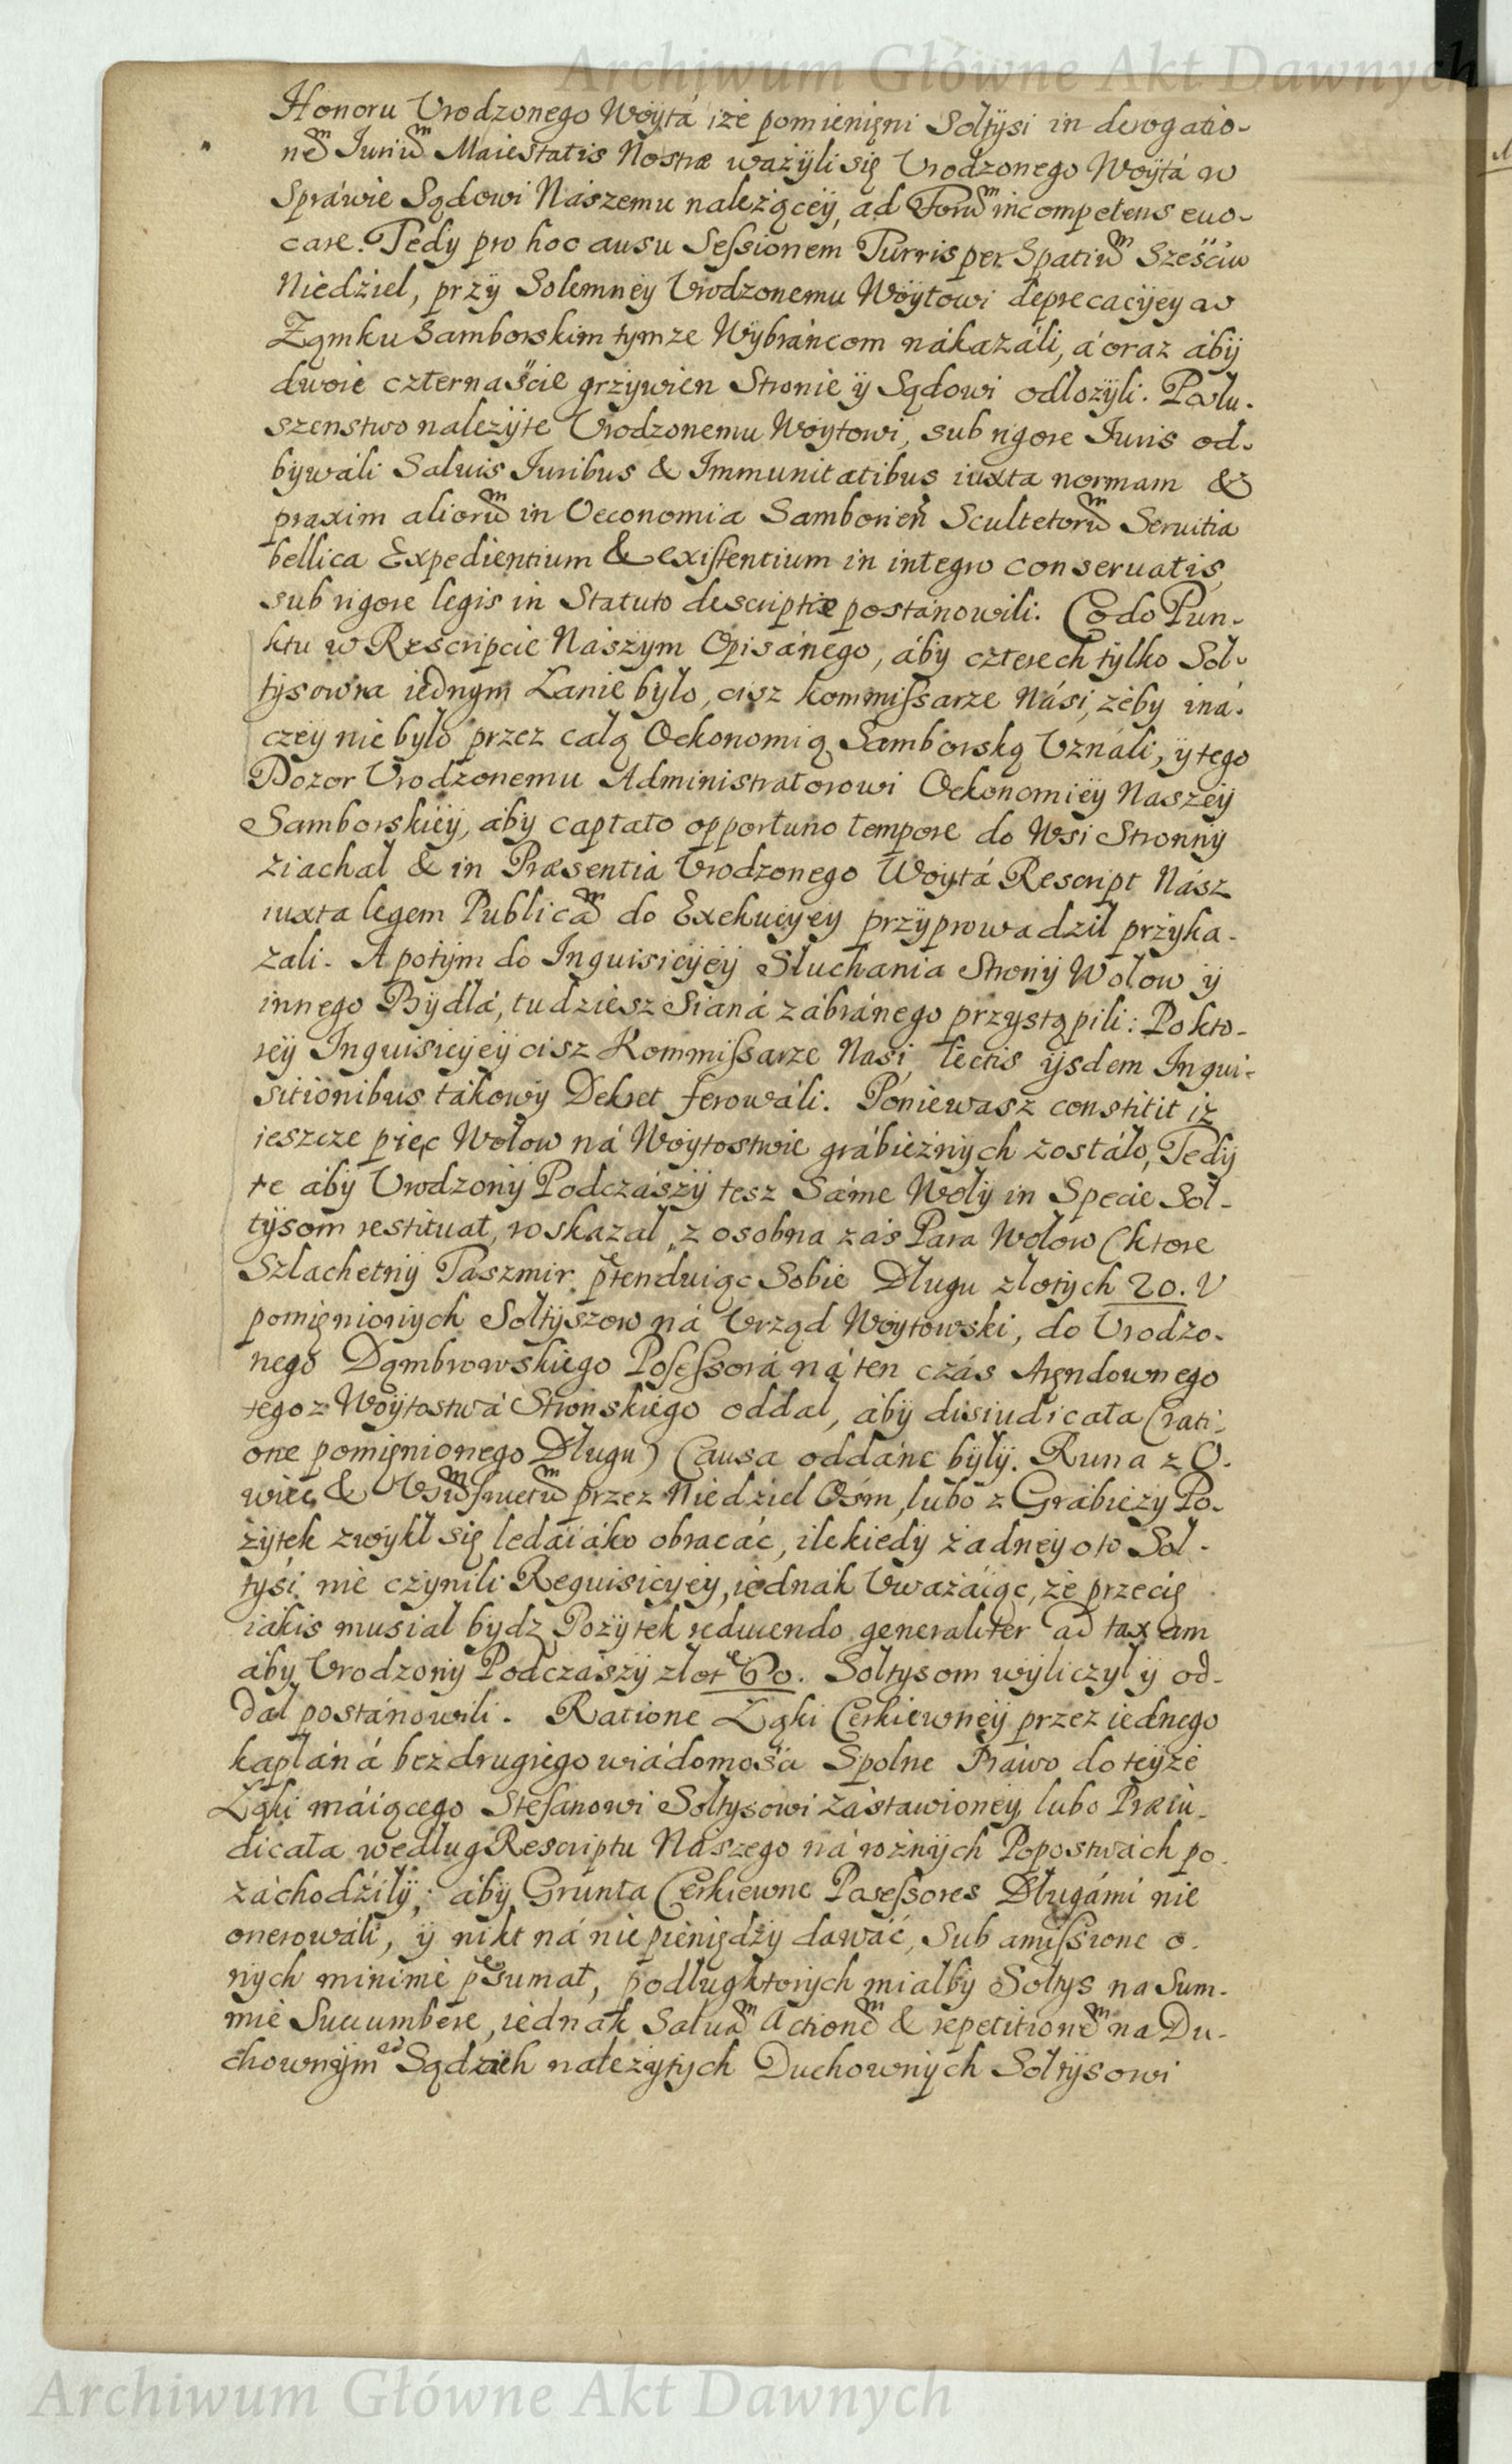 Archiwum Główne Akt Dawnych
Honoru Vrodzonego Woytá iże pomienięni Soltysi in derogatio-
nem̃ Iurium̃ Maiestatis Nostræ ważyli się Vrodzonego Woytá w
Spráwie Sądowi Nászemu należącey, ad Forum̃ incompetens euo-
care. Tedy pro hoc ausu Seſsionem Turris per Spatium̃ Sześciu
Niedziel, przy Solemney Vrodzonemu Woytowi deprecacyey w
Zamku Samborskim tymze Wybráncom nákazáli, á oraz áby
dwoie czternaście grzywien Stronie y Sądowi odlożyli. Poslu-
szenstwo należyte Vrodzonemu Woytowi, sub rigore Iuris od-
bywáli Saluis Iuribus & Immunitatibus iuxta normam &
praxim aliorum̃ in Oeconomia Samborień Scultetorum̃ Seruitia
bellica Expedientium & existentium in integro conseruatis,
sub rigore legis in Statuto descriptæ postánowili. Co do Pun-
ktu w Rescripcie Nászym Opisánego, áby czterech tylko Sol-
tysow na iednym Lanie bylo, cisz kommiſsarze Nási, żeby iná-
czey nie bylo przez calą Oekonomią Samborską Vználi, y tego
Dozor Vrodzonemu Administratorowi Oekonomiey Naszey
Samborskiey, áby captato opportuno tempore do Wsi Stronny
ziachal & in Præsentia Vrodzonego Woytá Rescript Nász
iuxta legem Publicam̃ do Exekucyey przyprowadzil przyka-
zali. A potym do Inquisicyey Sluchania Strony Wolow y
innego Bydlá, tudziesz Sianá zábránego przystąpili: Po kto-
rey Inquisicyey cisz Kommiſsarze Nasi, lectis ysdem Inqui-
sitionibus tákowy Dekret ferowáli. Poniewasz constitit iz
ieszcze pięc Wolow ná Woytostwie grábieżnych zostálo, Tedy
te áby Vrodzony Podczászy tesz Sáme Woly in Specie Sol-
tysom restituat, roskazal, z osobna zás Para Wolow (ktore
Szlachetny Taszmir prętenduiąc Sobie Dlugu zlotych 20. V
pomięnionych Soltyszow ná Vrząd Woytowski, do Vrodzo-
nego Dąmbrowskiego Poseſsorá ná ten czás Aręndownego
tego z Woytostwá Stronskiego oddal, áby disiudicata (rati-
one pomięnionego Dlugu) Causa oddáne byly. Runa z O-
wiec & Vsumfructum̃ przez Niedziel Osm, lubo z Grabieży Po-
żytek zwykl się ledaiáko obracác, ile kiedy żadney oto Sol-
tysi nie czynili Requisicyey, iednák Vważáiąc, że przecię
iákis musial bydz Pożytek reducendo generaliter ad taxam
áby Vrodzony Podczászy zlot 60. Soltysom wyliczyl y od-
dal postánowili. Ratione Ląki Cerkiewney przez iednego
kaplána á bez drugiego wiádomości Spolne Práwo do teyże
Ląki máiącego Stefanowi Soltysowi zástawioney, lubo Præiu-
dicata wedlug Rescriptu Naszego ná rożnych Popostwách po-
záchodzily; áby Grunta Cerkiewne Poseſsores Dlugámi nie
onerowáli, y nikt ná nie pieniędzy dawáć, sub amiſsione o-
nych minime pręsumat, podlug ktorych mialby Soltys na Sum-
mie Succumbere, iednak Saluam̃ Actionem̃ & repetitionem̃ na Du-
chownym ad Sądzich należytych Duchownych Soltysowi
Archiwum Główne Akt Dawnych